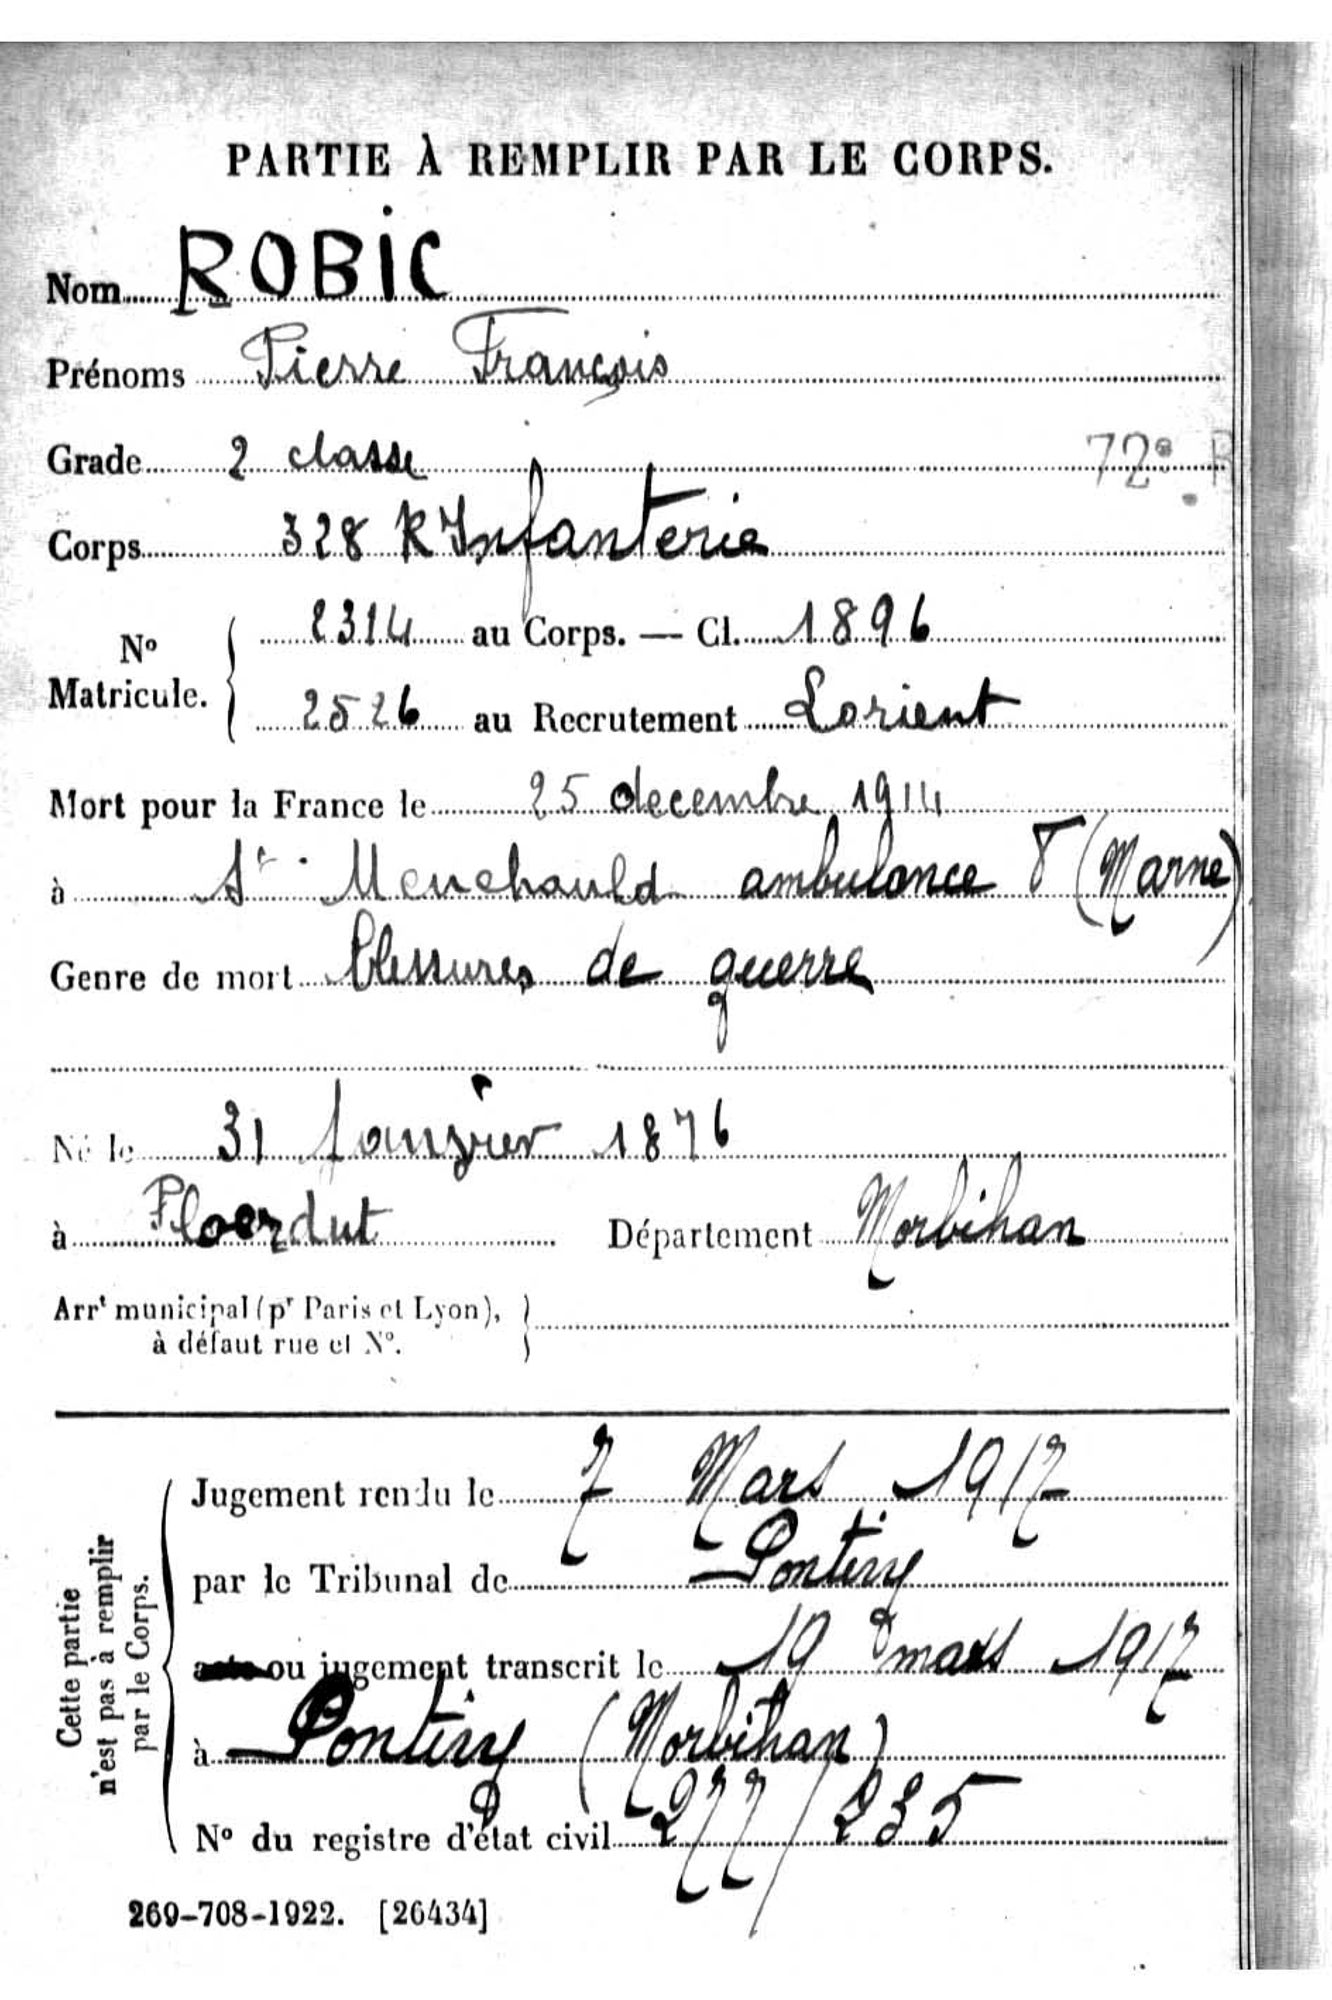 PARTIE À REMPLIR PAR LE CORPS.
Nom ROBIC
Prénoms Pierre François
Grade 2 classe 72e R
Corps 328 R Infanterie
No Matricule. 2314 au Corps. — Cl. 1896
2526 au Recrutement Lorient
Mort pour la France le 25 decembre 1914
à St. Menehauld ambulance 8 (Marne)
Genre de mort blessures de guerre
Né le 31 Janvier 1876
à Ploerdut Département Morbihan
Arrt municipal (pr Paris et Lyon),
à défaut rue et No.
Cette partie
n'est pas à remplir
par le Corps.
Jugement rendu le 7 Mars 1917
par le Tribunal de Pontivy
acte ou jugement transcrit le 19 mars 1917
à Pontivy (Morbihan)
No du registre d'état civil 277/235
269-708-1922. [26434]